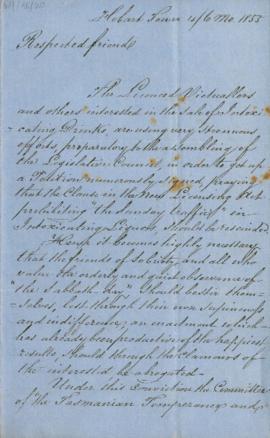 Hobart Town 4/6 Mo. 1855
Respected friends
The Licensed Victuallers
and others interested in the Sale of Intoxi-
-cating Drinks, are using very strenuous
efforts, preparatory to the assembling of
the Legislative Council, in order to get up
a Petition numerously signed, praying
that the Clause in the New Licensing Act
prohibiting "the Sunday traffic" in
Intoxicating Liquors, should be rescinded.
Hence it becomes highly necessary
that the friends of Sobriety, and all who
value the orderly and quiet observance of
"the Sabbath day" should bestir them-
selves, lest through their own Supineness
and indifference, an enactment which
has already been productive of the happiest
results, should through the Clamours of
the interested be abrogated.
Under this Conviction the Committee
of "the Tasmanian Temperance and